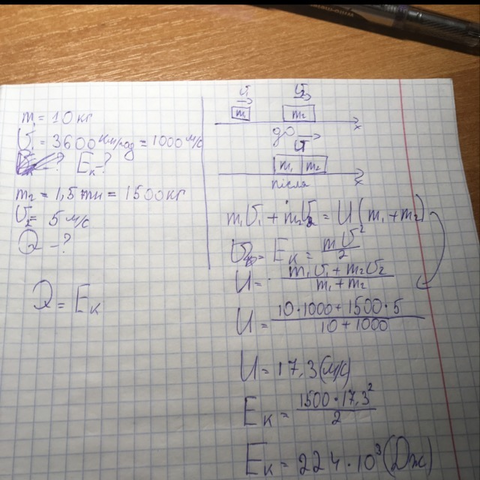 m₁ = 10 кг
υ₁ = 3600 км/год = 1000 м/с
? Eк - ?
m₂ = 1,5 тн = 1500 кг
υ₂ = 5 м/с
Q - ?
Q = Eк
υ₁ υ₂
m₁ m₂
x
до
U
m₁ m₂
x
після
m₁υ₁ + m₂υ₂ = U(m₁ + m₂)
Eк = mυ²/2
U = (m₁υ₁ + m₂υ₂)/(m₁ + m₂)
U = (10·1000 + 1500·5)/(10 + 1000)
U = 17,3 (м/с)
Eк = (1500·17,3²)/2
Eк = 224·10³ (Дж)